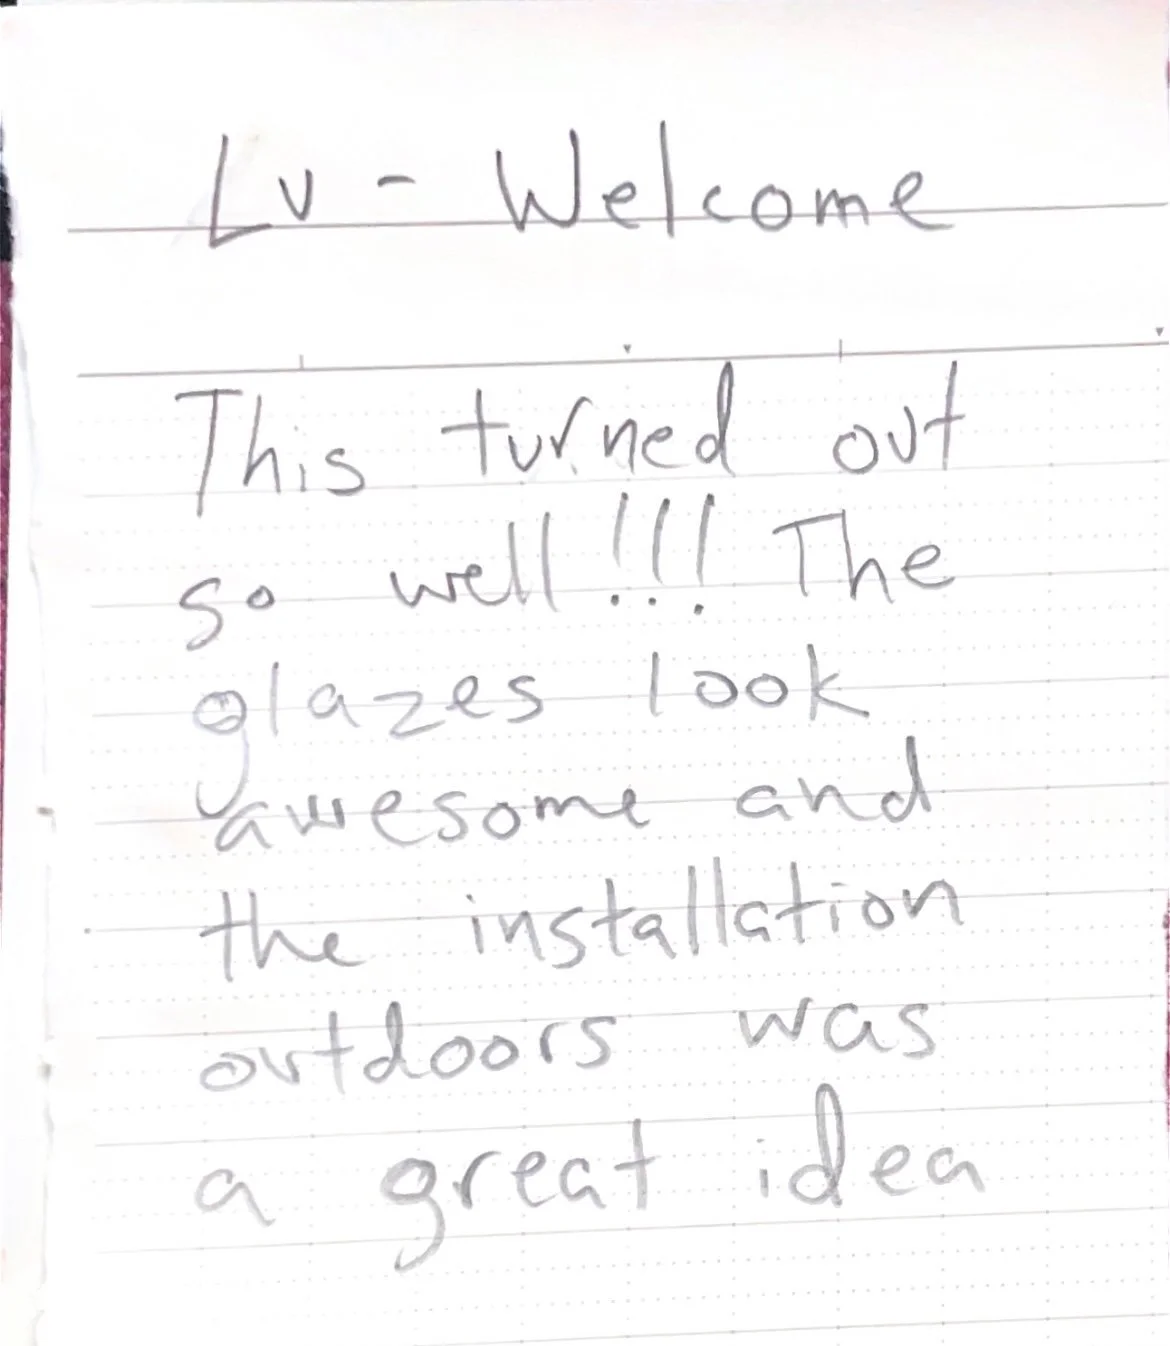 Lv - Welcome
This turned out
so well!!! The
glazes look
awesome and
the installation
outdoors was
a great idea